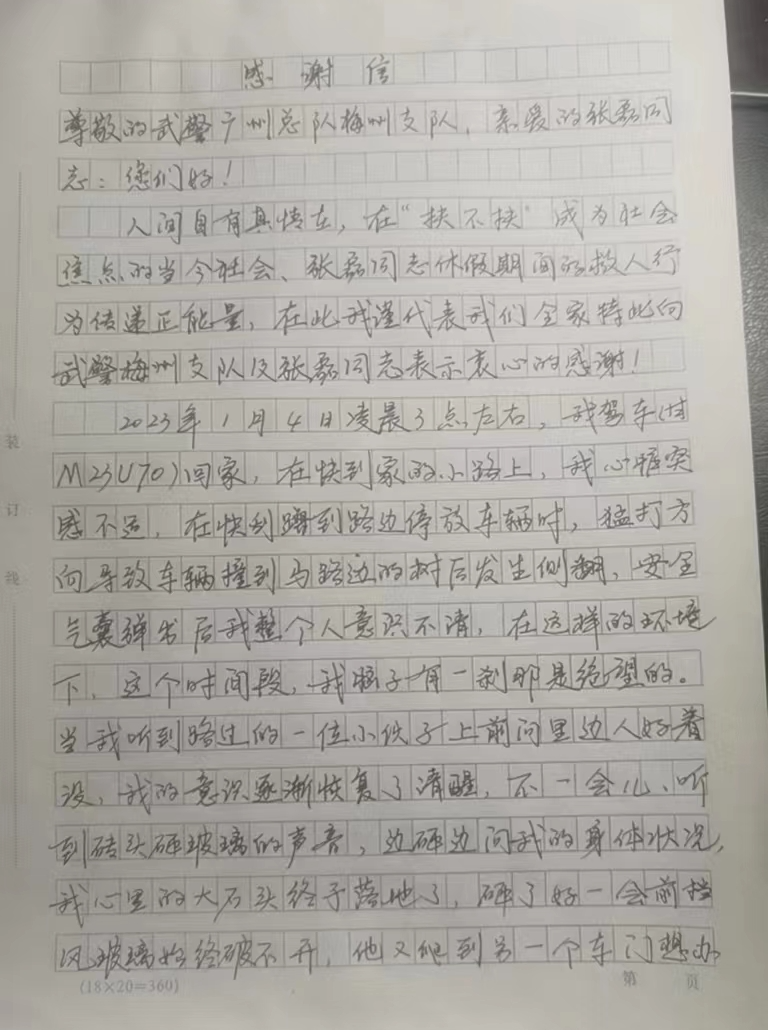 感谢信
尊敬的武警广州总队梅州支队，亲爱的张磊同
志：您们好！
人间自有真情在，在“扶不扶”成为社会
焦点的当今社会、张磊同志休假期间的救人行
为传递正能量，在此我谨代表我们全家特此向
武警梅州支队及张磊同志表示衷心的感谢！
2023年1月4日凌晨3点左右，我驾车(甘
M23U70)回家，在快到家的小路上，我心脏突
感不适，在快到蹭到路边停放车辆时，猛打方
向导致车辆撞到马路边的树后发生侧翻，安全
气囊弹出后我整个人意识不清，在这样的环境
下，这个时间段，我脑子有一刹那是绝望的。
当我听到路过的一位小伙子上前问里边人好着
没，我的意识逐渐恢复了清醒，不一会儿、听
到砖头砸玻璃的声音，边砸边问我的身体状况，
我心里的大石头终于落地了，砸了好一会前挡
风玻璃始终破不开，他又爬到另一个车门想办
(18×20=360) 第 页
装
订
线